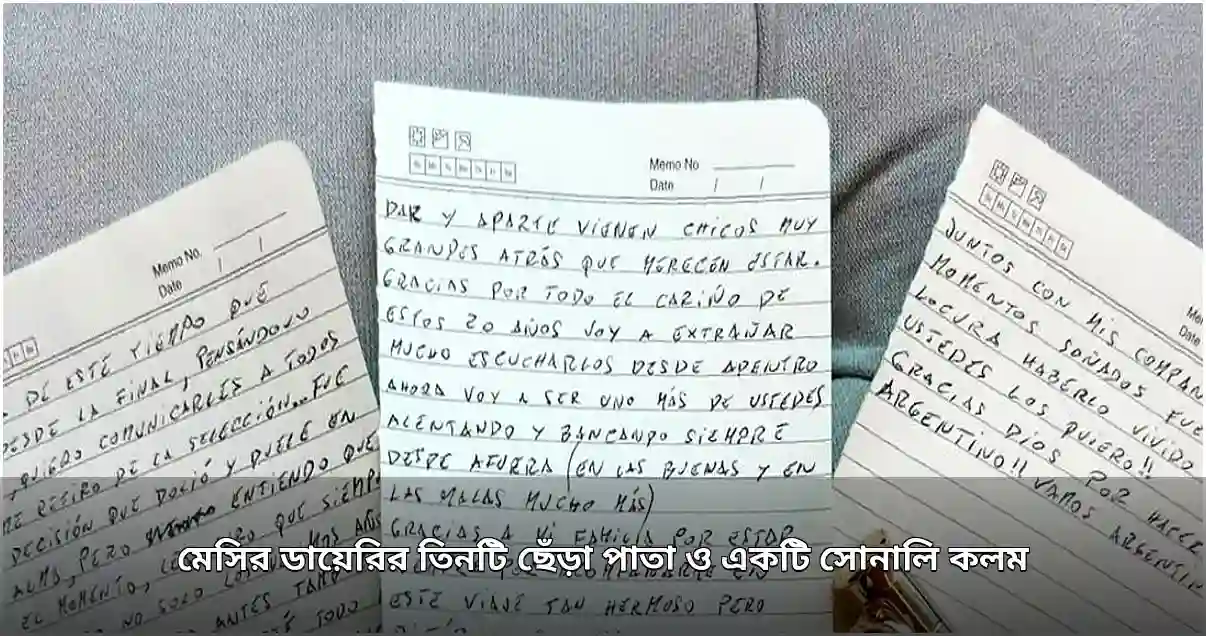 Memo No.
Date / /
DE ESTE TIEMPO QUE
DESDE LA FINAL, PENSÁNDOLO
QUIERO COMUNICARLES A TODOS
ME RETIRO DE LA SELECCIÓN.. FUE
DECISIÓN QUE DOLIÓ Y DUELE EN
ALMA, PERO ENTIENDO QUE
EL MOMENTO, QUE SIEMP
NO SOLO LOS MAS AÑOS
ANTES TAMB
TODO
Memo No
Date / /
DAR Y APARTE VIENEN CHICOS MUY
GRANDES ATRÁS QUE MERECEN ESTAR.
GRACIAS POR TODO EL CARIÑO DE
ESTOS 20 AÑOS VOY A EXTRAÑAR
MUCHO ESCUCHARLOS DESDE ADENTRO
AHORA VOY A SER UNO MÁS DE USTEDES
ALENTANDO Y BANCANDO SIEMPRE
DESDE AFUERA (EN LAS BUENAS Y EN
LAS MALAS MUCHO MÁS)
GRACIAS A MI FAMILIA POR ESTAR
ESTE VIAJE TAN HERMOSO PERO
Me
Date
JUNTOS CON MIS COMPAÑ
MOMENTOS SOÑADOS FUE
LOCURA HABERLO VIVIDO
USTEDES LOS QUIERO!!
GRACIAS DIOS POR HACER
ARGENTINO!! VAMOS ARGENTIN
মেসির ডায়েরির তিনটি ছেঁড়া পাতা ও একটি সোনালি কলম